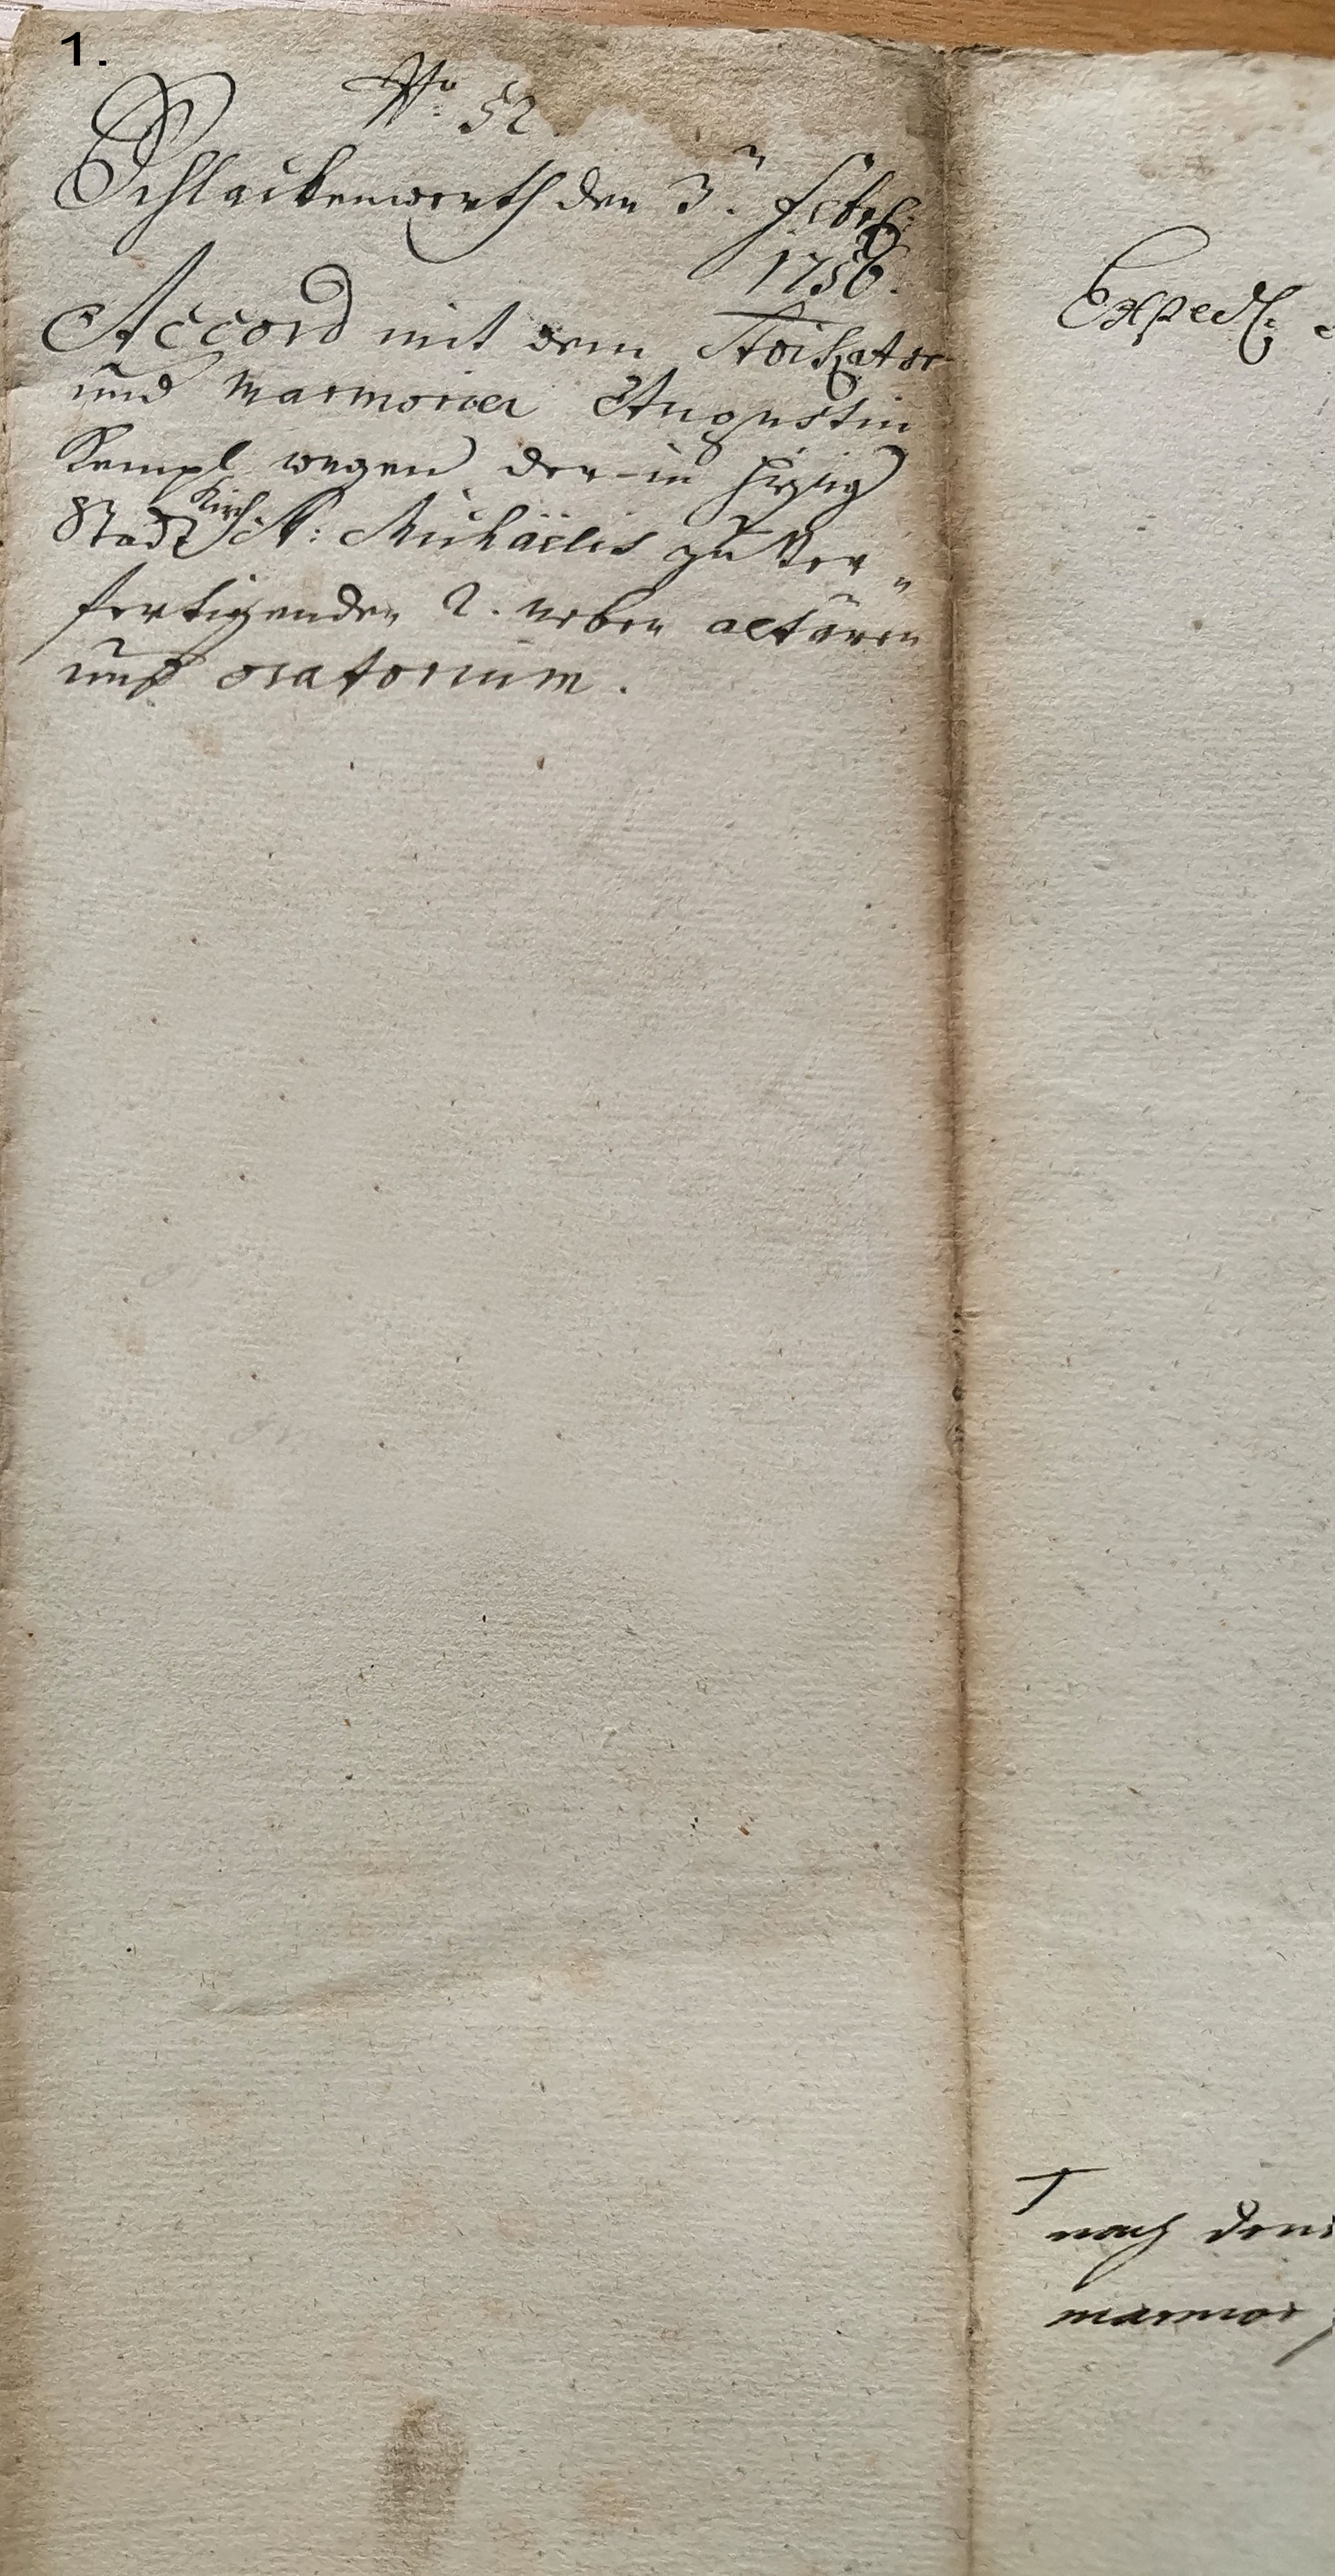 1.
No. 52.
Schlackenwerth den 3.n Febr:
1756.
Accord mit dem Stockator
und Marmorirer Augustin
Rempl wegen der in hiesig
Stadt Kirch S: Michaelis zu Ver„
fertigenden 2. neben altären
und oratorium.
Exped:
nach dem
marmor